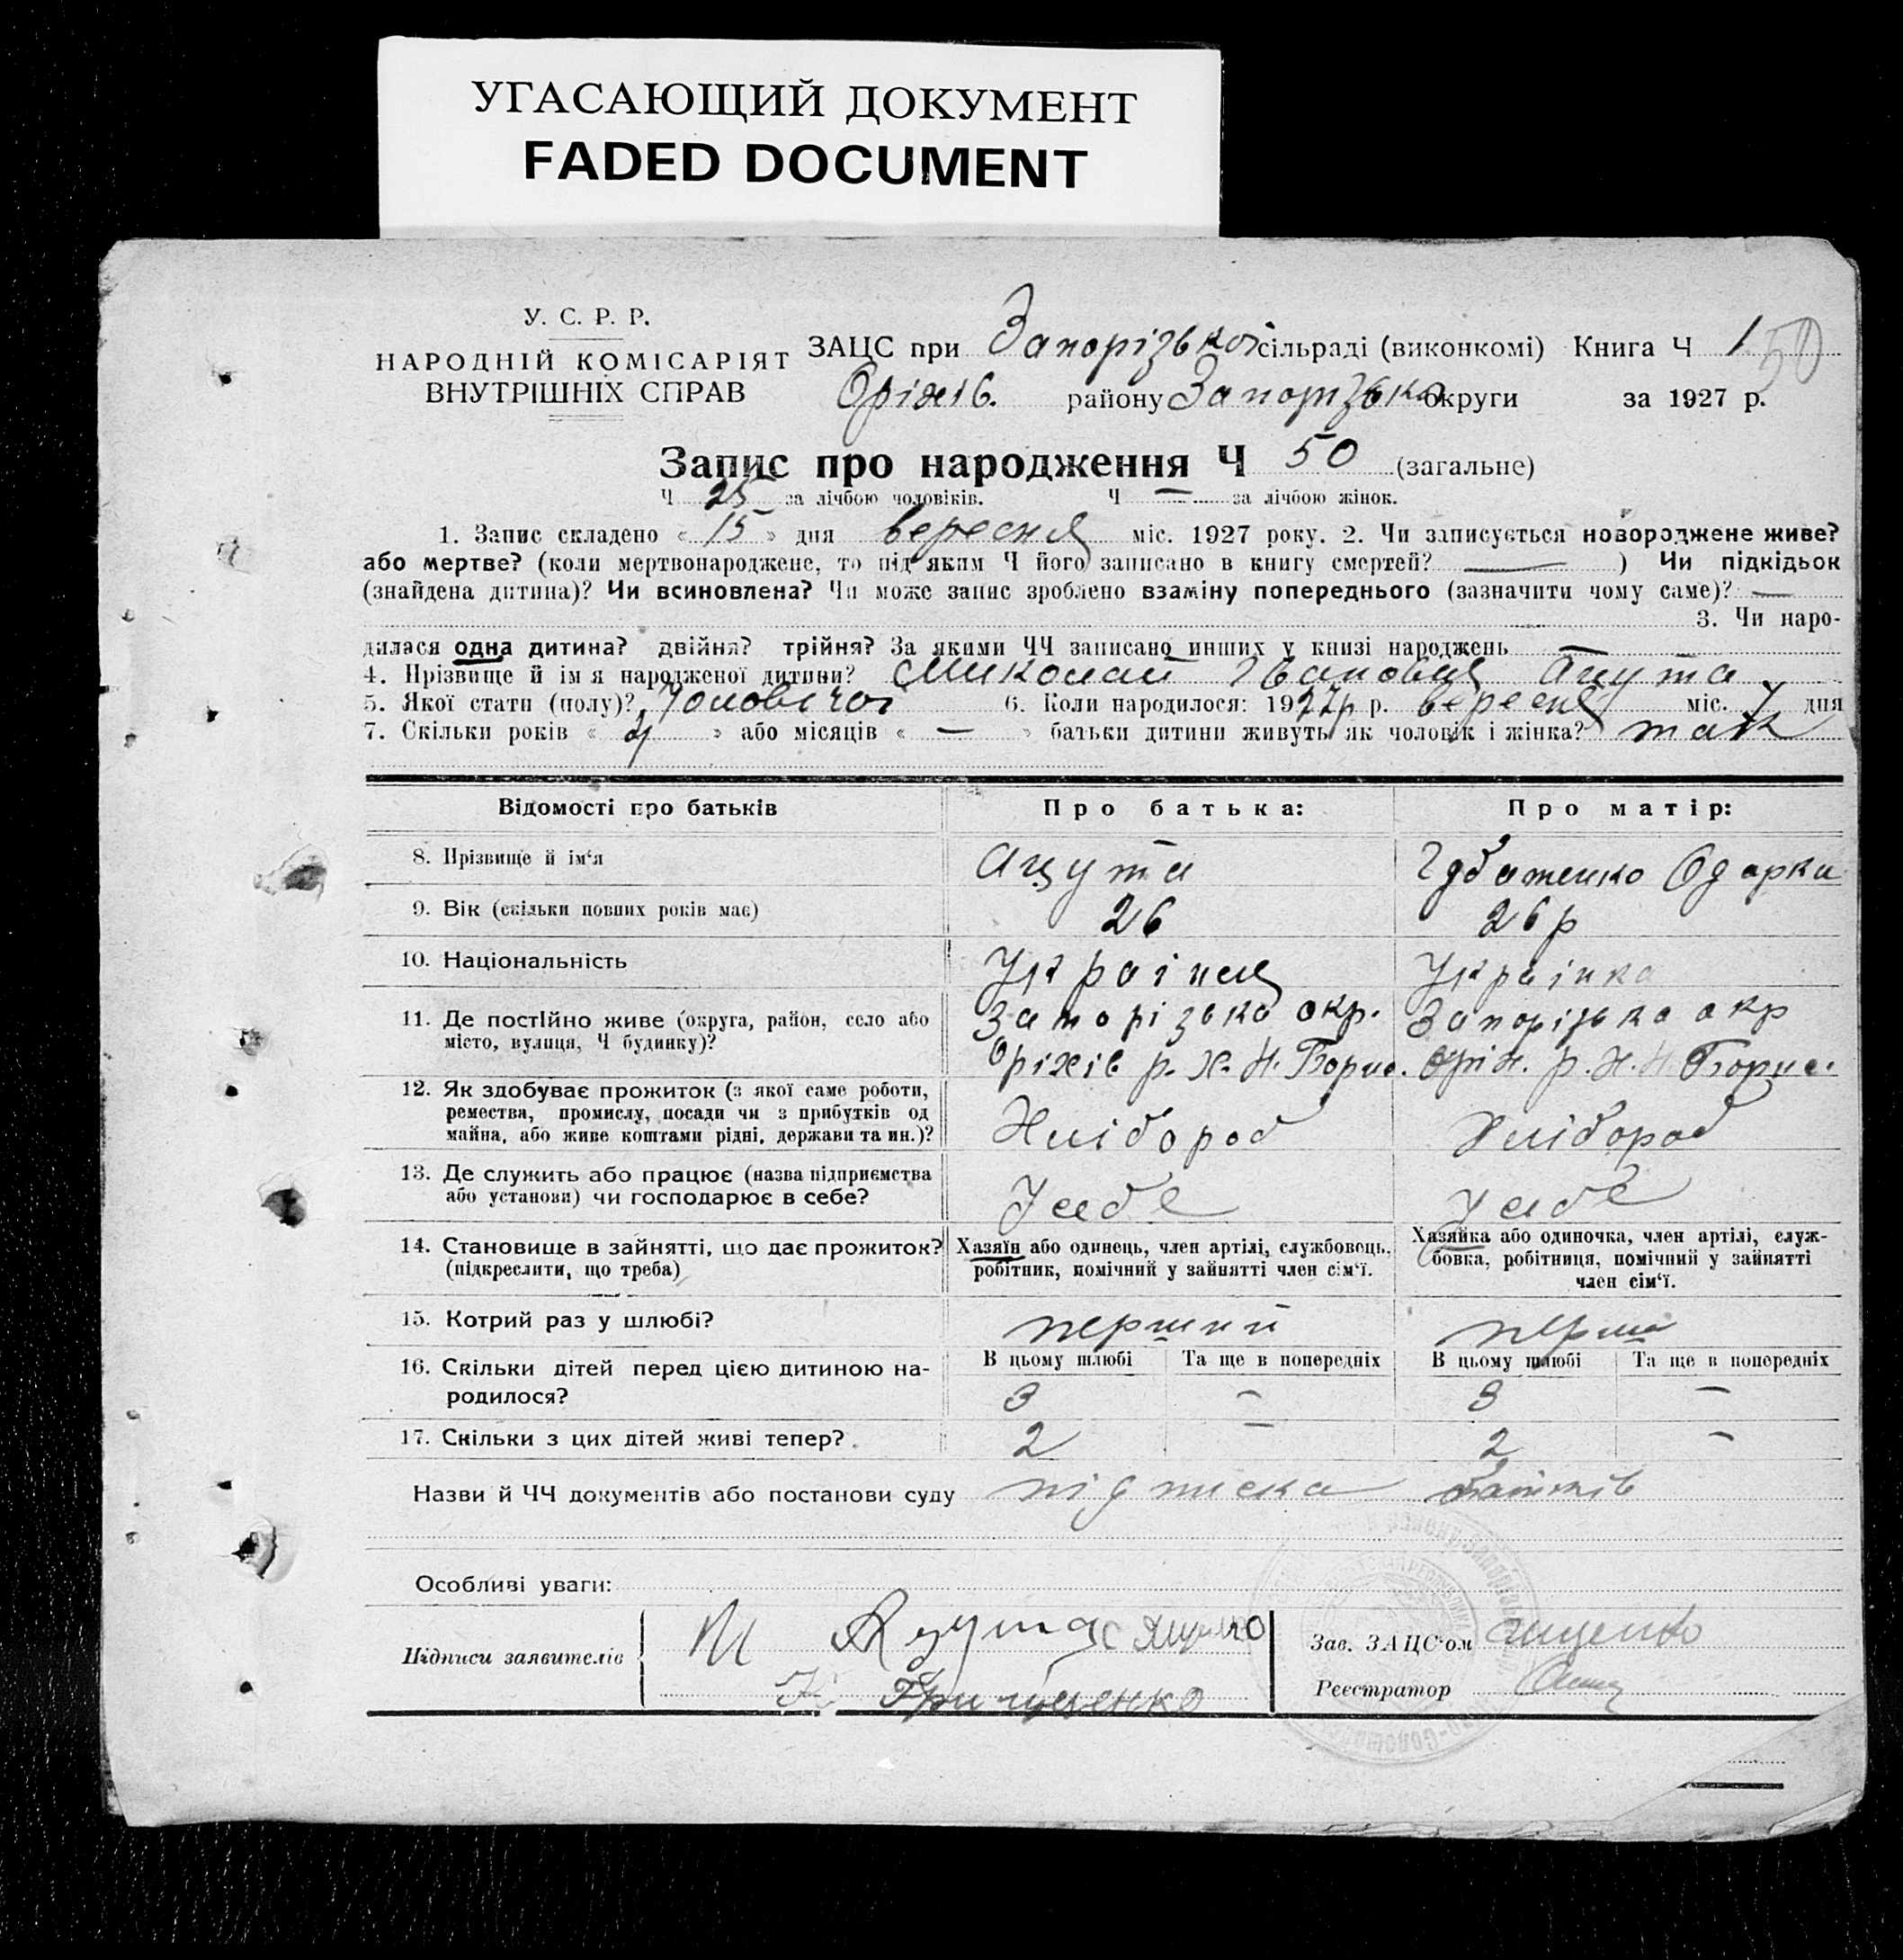 УГАСАЮЩИЙ ДОКУМЕНТ
FADED DOCUMENT
У. С. Р. Р.
НАРОДНІЙ КОМІСАРІЯТ
ВНУТРІШНІХ СПРАВ
ЗАЦС при Запорізької сільраді (виконкомі) Книга Ч 1 50
Оріхів. району Запорізька округи за 1927 р.
Запис про народження Ч 50 (загальне)
Ч 25 за лічбою чоловіків. Ч — за лічбою жінок.
1. Запис складено « 15 » дня вересня міс. 1927 року. 2. Чи записується новороджене живе?
або мертве? (коли мертвонароджене, то під яким Ч його записано в книгу смертей? — ) Чи підкідьок
(знайдена дитина)? Чи всиновлена? Чи може запис зроблено взаміну попереднього (зазначити чому саме)? —
3. Чи наро-
дилася одна дитина? двійня? трійня? За якими ЧЧ записано инших у книзі народжень
4. Прізвище й ім'я народженої дитини? Миколай Іванович Ацута
5. Якої стати (полу)? Чоловічої 6. Коли народилося: 1927р р. вересня міс. 7 дня
7. Скільки років « » або місяців « — » батьки дитини живуть як чоловік і жінка? так
Відомості про батьків Про батька: Про матір:
8. Прізвище й ім'я Ацута Одарка
9. Вік (скільки повних років має) 26 26 р
10. Національність Українец Українка
11. Де постІйно живе (округа, район, село або Запорізька окр. Запорізька окр
місто, вулиця, Ч будинку)? Оріхів р. Х. Н. Борис. Оріх. р. Х. Н. Борис.
12. Як здобуває прожиток (з якої саме роботи,
ремества, промислу, посади чи з прибутків од Хлібороб Хлібороб
майна, або живе коштами рідні, держави та ин.)?
13. Де служить або працює (назва підприємства
або установи) чи господарює в себе? У себе У себе
14. Становище в зайнятті, що дає прожиток? Хазяїн або одинець, член артілі, службовець, Хазяйка або одиночка, член артілі, служ-
(підкреслити, що треба) робітник, помічний у зайнятті член сім'ї. бовка, робітниця, помічний у зайнятті
член сім'ї.
15. Котрий раз у шлюбі? перший перша
16. Скільки дітей перед цією дитиною на- В цьому шлюбі Та ще в попередніх В цьому шлюбі Та ще в попередніх
родилося? 3 — 3 —
17. Скільки з цих дітей живі тепер? 2 — 2 —
Назви й ЧЧ документів або постанови суду підписка батьків
Особливі уваги:
Підписи заявителів Ацута Зав. ЗАЦС'ом
Грищенко Реєстратор